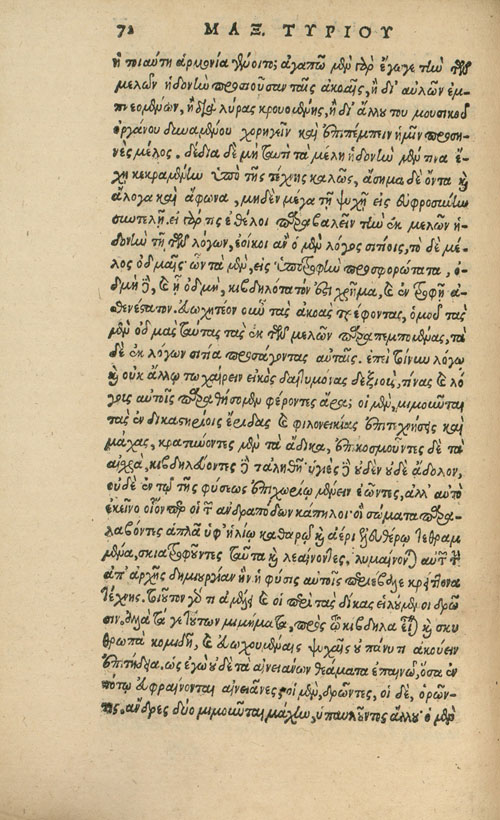 72 ΜΑΞ. ΤΥΡΙΟΥ
ἡ τοιαύτη ἁρμονία γένοιτο; ἀγαπῶ μὲν γὰρ ἔγωγε τὴν τῶν
μελῶν ἡδονὴν προσιοῦσαν ταῖς ἀκοαῖς, ἢ δι' αὐλῶν ἐμ-
πνεομένων, ἢ διὰ λύρας κρουομένης, ἢ δι' ἄλλου του μουσικοῦ
ὀργάνου δυναμένου χορηγεῖν καὶ ἐπιπέμπειν ἡμῖν προση-
νὲς μέλος. δέδια δὲ μὴ ταυτὶ τὰ μέλη ἡδονὴν μέν τινα ἔ-
χῃ κεκραμένην ὑπὸ τῆς τέχνης καλῶς, ἄσημα δὲ ὄντα καὶ
ἄλογα καὶ ἄφωνα, μηδὲν μέγα τῇ ψυχῇ εἰς εὐφροσύνην
συντελῇ. εἰ γάρ τις ἐθέλοι παραβαλεῖν τὴν ἐκ μελῶν ἡ-
δονὴν τῇ τῶν λόγων, ἐοίκοι ἂν ὁ μὲν λόγος σιτίοις, τὸ δὲ μέ-
λος ὀδμαῖς ὧν τὰ μὲν, εἰς ὑποτροφὴν προσφορώτατα, ὀ-
δμὴ δὲ, καὶ ἡ ὀδμὴ, κιβδηλότατόν ἐστι χρῆμα, καὶ ἐν τροφῇ ἀ-
θενέστατον. διωχτέον οὖν τὰς ἀκοὰς τρέφοντας, ὁμοῦ τὰς
μὲν ὀδμὰς ταύτας τὰς ἐκ τῶν μελῶν παραπεμπομένας, τὰ
δὲ ἐκ λόγων σιτία προσάγοντας αὐταῖς. ἐπεὶ τοίνυν λόγῳ
καὶ οὐκ ἄλλῳ τῳ χαίρειν εἰκὸς δαιτυμόνας δεξιοὺς, τίνας καὶ λό-
γοις αὐτοῖς παραθήσομεν φέροντες ἆρα; οἱ μὲν, μιμοῦνται
τὰς ἐν δικαστηρίοις ἔριδας καὶ φιλονεικίας ἐπιτεχνήσεις καὶ
μάχας, κρατύνοντες μὲν τὰ ἄδικα, ἐπικοσμοῦντες δὲ τὰ
αἰσχρὰ, κιβδηλεύοντες δὲ τἀληθῆ· ὑγιὲς δὲ οὐδὲν οὐδὲ ἄδολον,
οὐδὲ ἐν τῷ τῆς φύσεως ἐπιχωρίῳ μένειν ἐῶντες, ἀλλ' αὐτὸ
ἐκεῖνο οἷον περ οἱ τῶν ἀνδραπόδων κάπηλοι· οἳ σώματα παρα-
λαβόντες ἁπλᾶ ὑφ' ἡλίῳ καθαρῷ καὶ ἀέρι ἐλευθέρῳ τεθραμ-
μένα, σκιατροφοῦντες ταῦτα καὶ λεαίνοντες, λυμαίνονται αὐτῶν τὴν
ἀπ' ἀρχῆς δημιουργίαν ἣν ἡ φύσις αὐτοῖς περιέβαλε κρείττονα
τέχνης. τοιοῦτον γάρ τι ἀμέλει καὶ οἱ περὶ τὰς δίκας εἱλούμενοι δρῶ
σιν. ἀλλὰ τά γε τούτων μιμήματα, πρὸς τῷ κίβδηλα εἶναι καὶ σκυ
θρωπὰ κομιδῇ, καὶ εὐωχουμέναις ψυχαῖς οὐ πάνυ τι ἀκούειν
ἐπιτήδεια. ὡς ἐγὼ οὐδὲ τὰ αἰνειάνων θεάματα ἐπαινῶ, ὅσα ἐν
πότῳ εὐφραίνονται αἰνειᾶνες, οἱ μὲν, δρῶντες, οἱ δὲ, ὁρῶν-
τες. ἄνδρες δύο μιμοῦνται μάχην, ὑπαυλοῦντος ἄλλου· ὁ μὲν